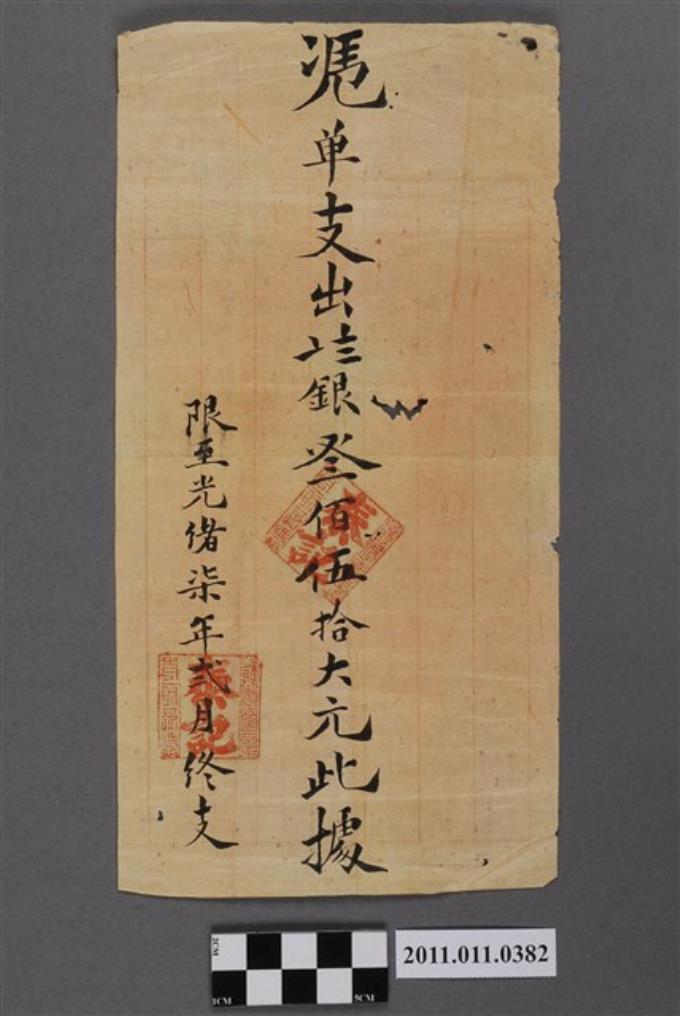 凴单支出 銀叁佰伍拾大元此據
限至光绪柒年弍月终支
泰記
2CM
1CM
5CM
2011.011.0382